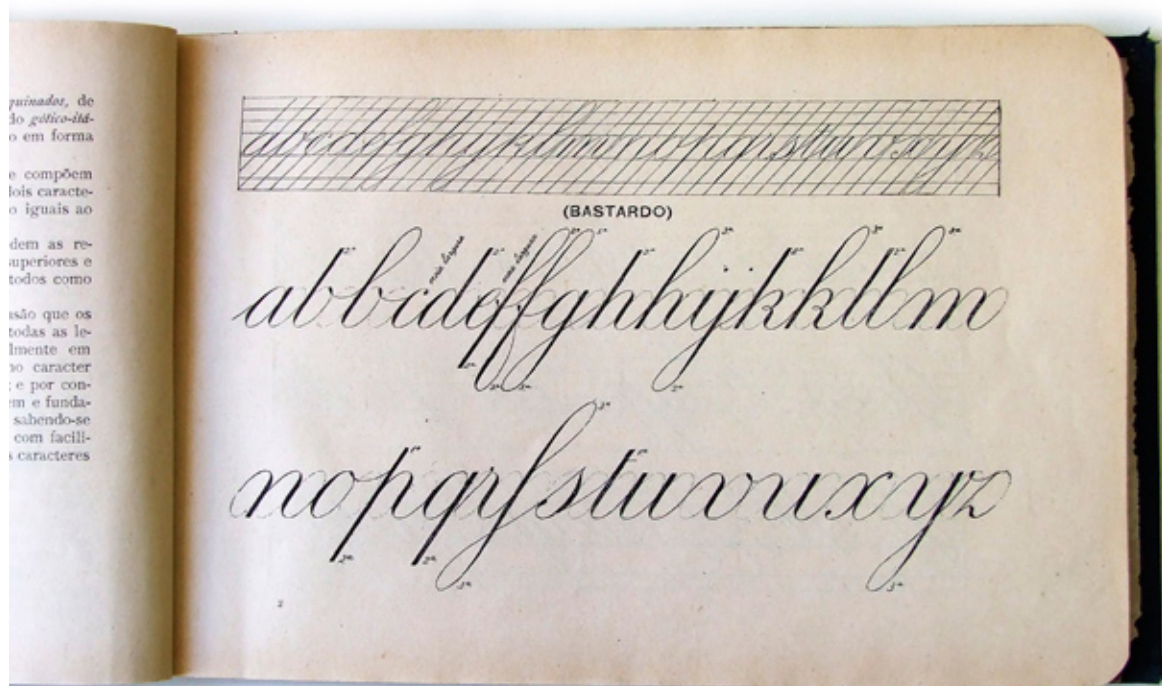 quinados, de
do gótico-itá-
o em forma
e compõem
dois caracte-
o iguais ao
dem as re-
superiores e
todos como
asão que os
todas as le-
lmente em
no caracter
; e por con-
em e funda-
sabendo-se
com facili-
s caracteres
abcdefghijklmnopqrstuvxyz
(BASTARDO)
abbcdefffghhijkkllm
nopqrſstuvuxyz
2